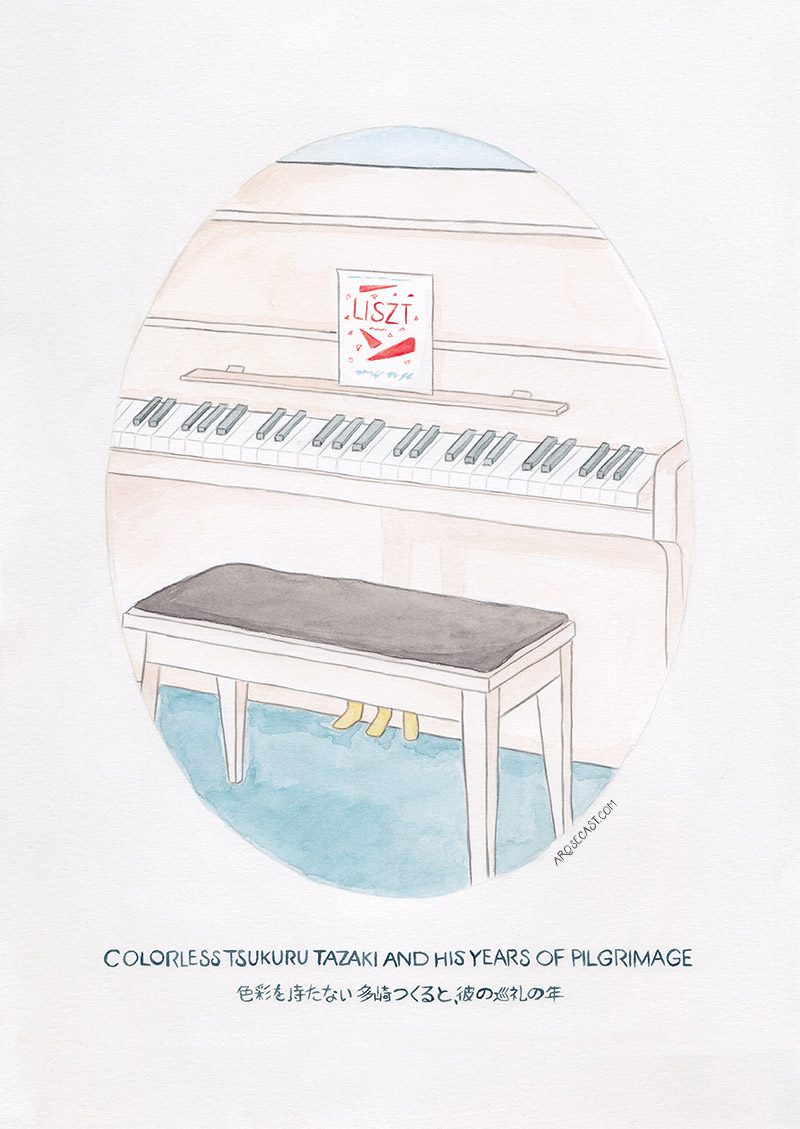 LISZT
AROSECAST.COM
COLORLESS TSUKURU TAZAKI AND HIS YEARS OF PILGRIMAGE
色彩を持たない多崎つくると、彼の巡礼の年